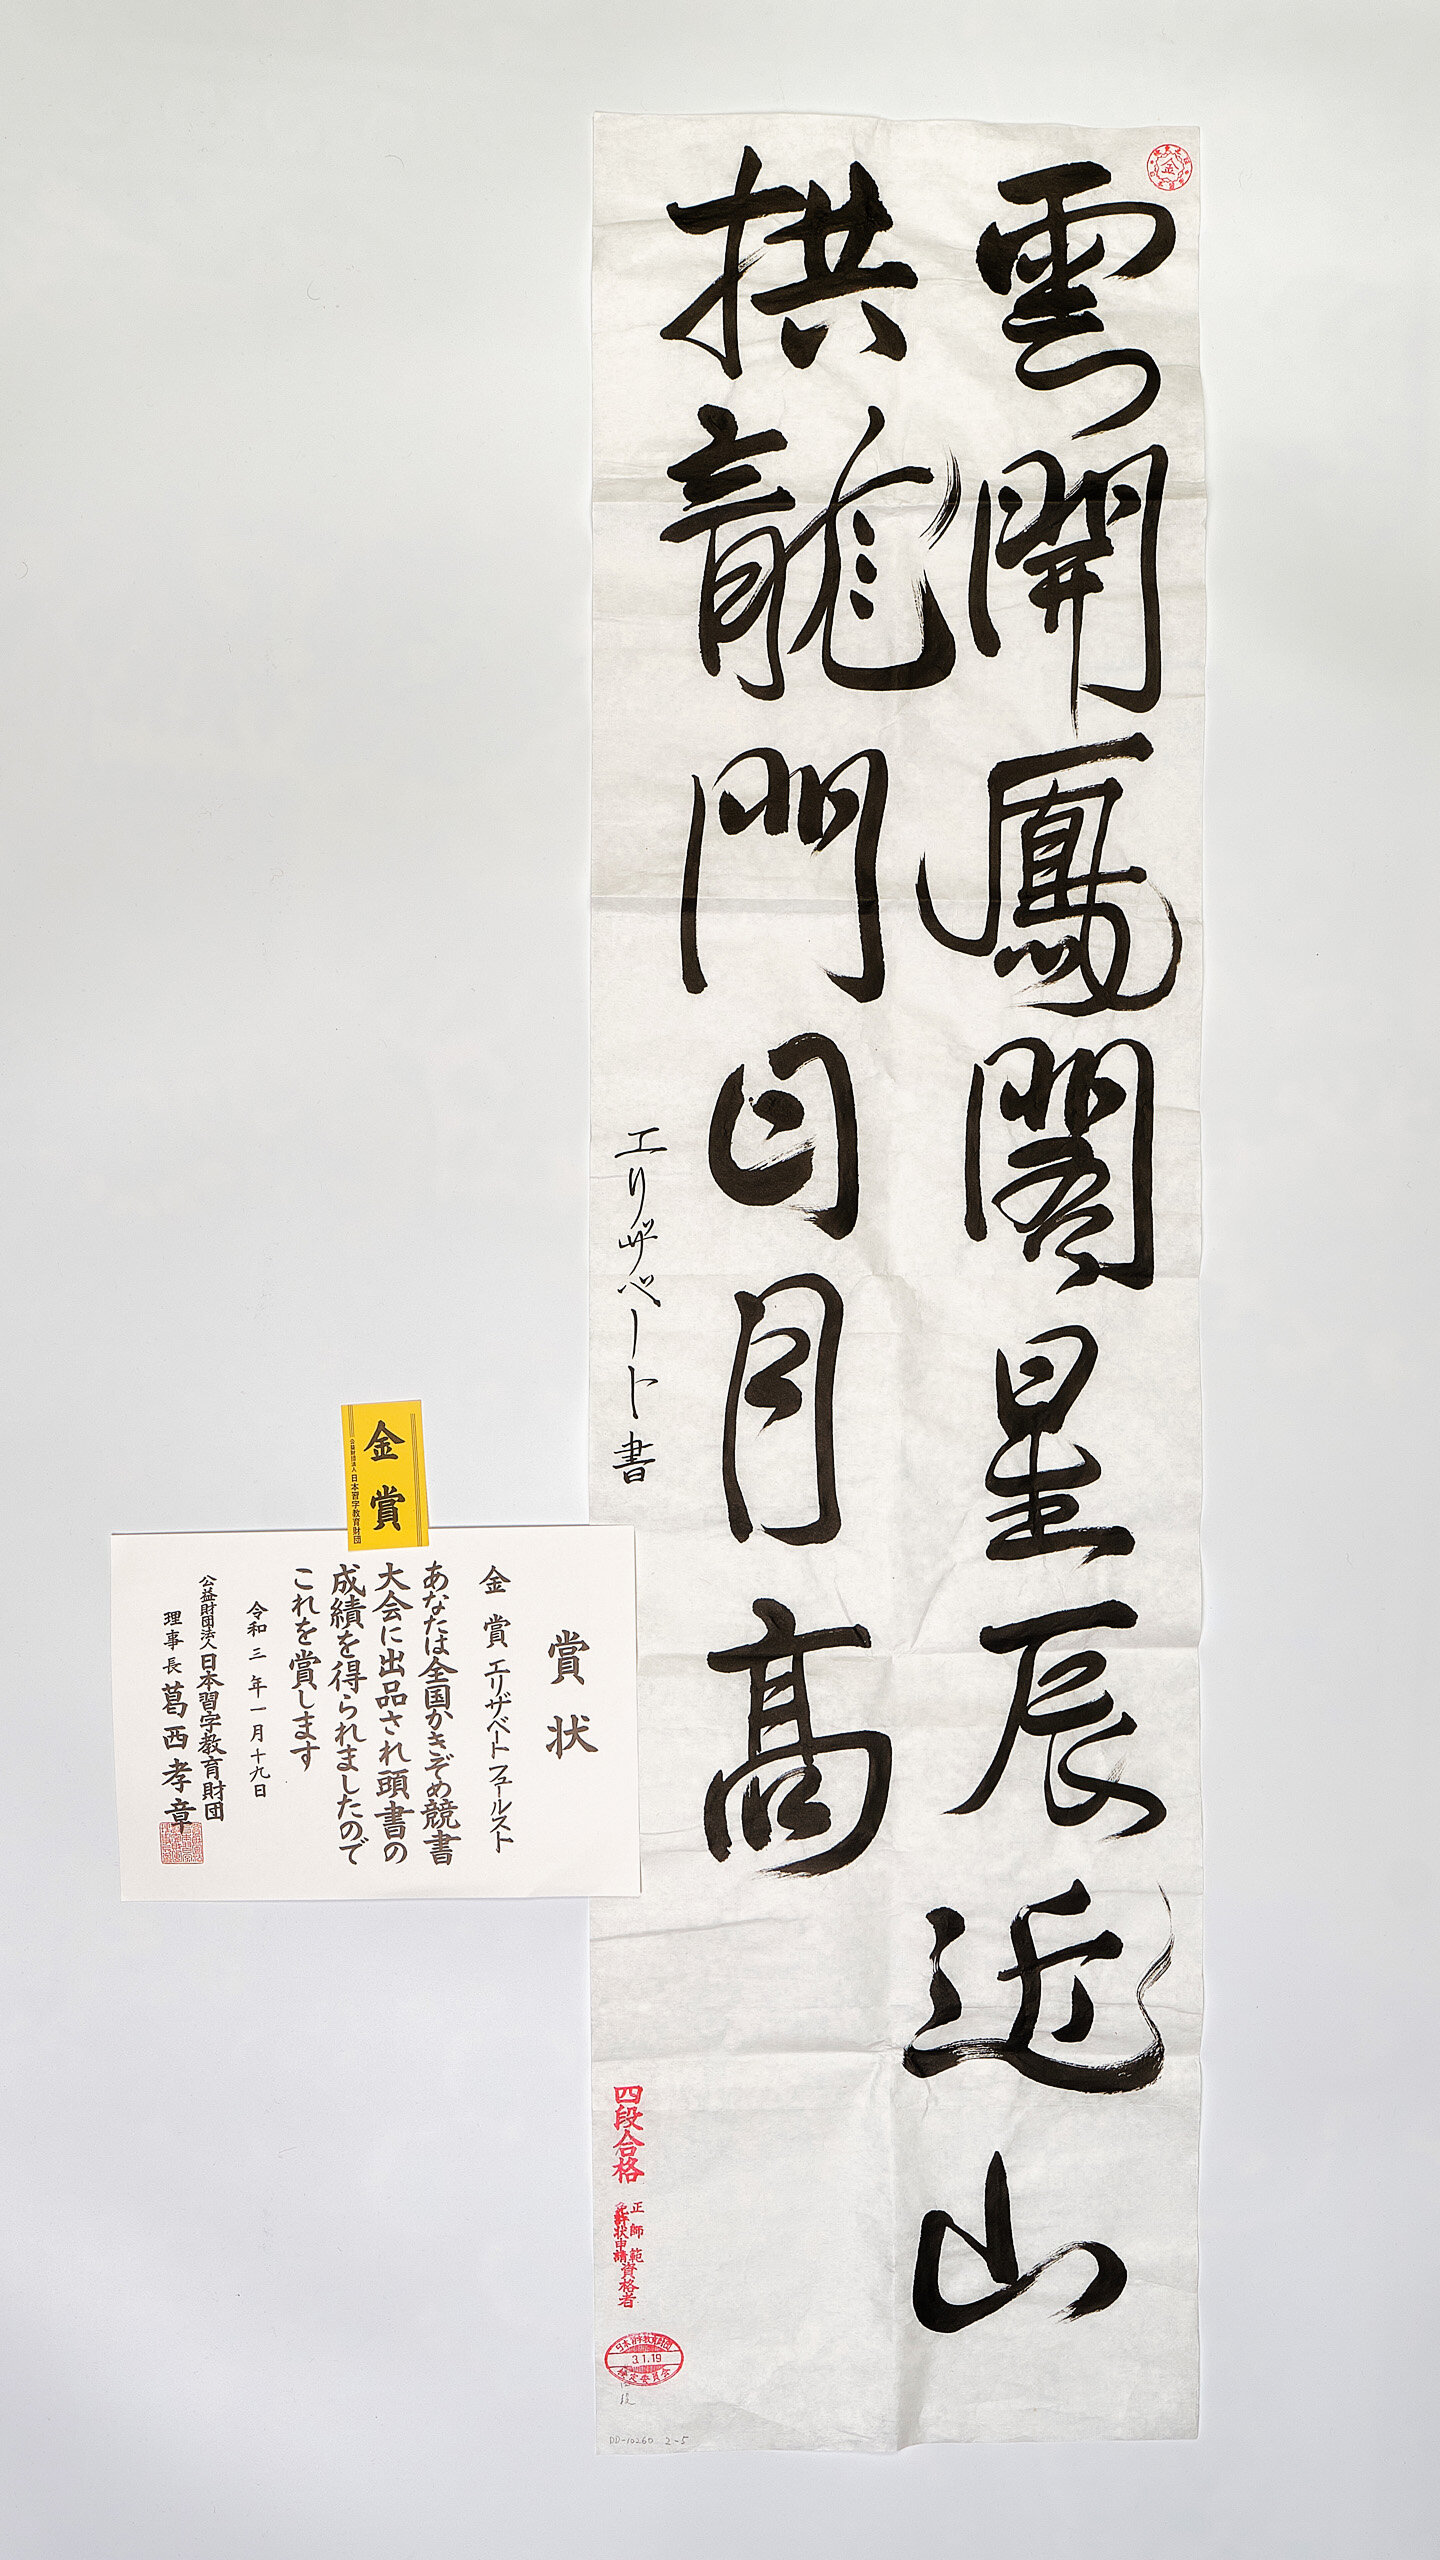 雲開鳳閣星辰近山
拱龍門日月高
エリザベート書
金
四段合格
正師範
免許状申請
資格者
日本習字教育財団
3.1.19
検定委員会
DD-10260 2-5
金賞
公益財団法人日本習字教育財団
賞状
金賞 エリザベート フュールスト
あなたは全国かきぞめ競書
大会に出品され頭書の
成績を得られましたので
これを賞します
令和三年一月十九日
公益財団法人日本習字教育財団
理事長 葛西孝章